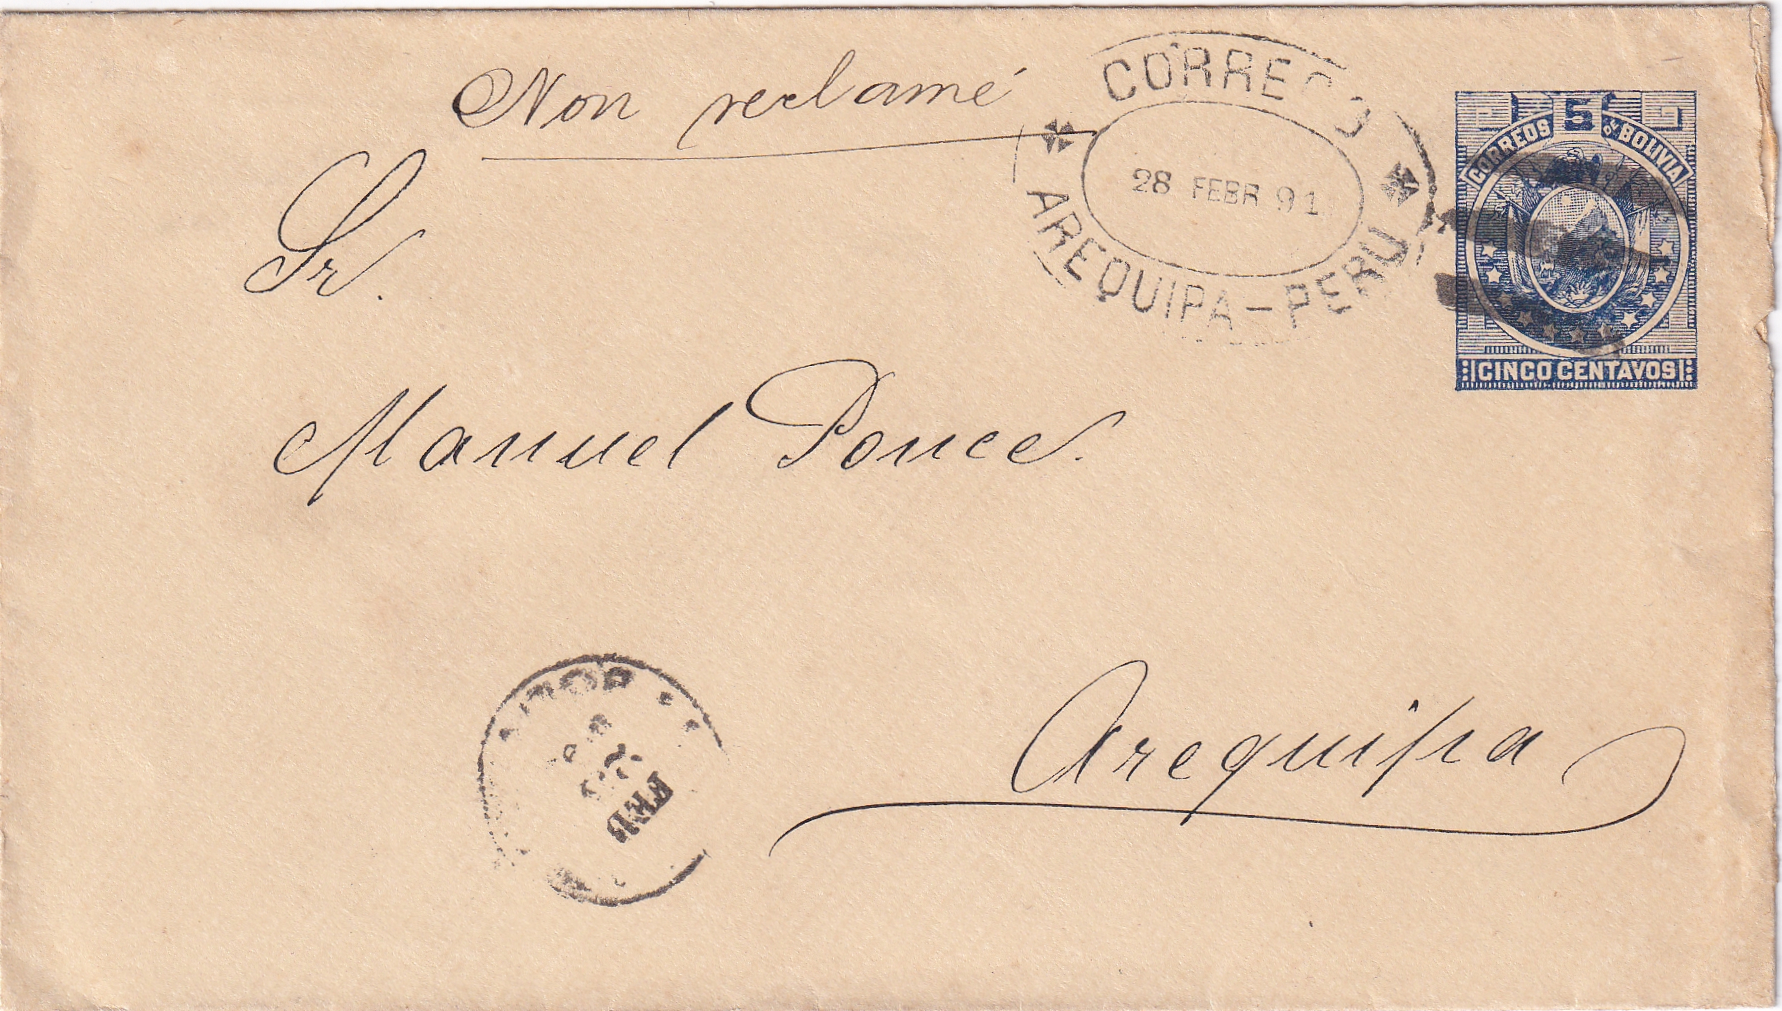 Non reclamé
CORREO
28 FEBR 91
AREQUIPA-PERU
5
CORREOS DE BOLIVIA
CINCO CENTAVOS
Sr.
Manuel Ponce.
Arequipa
FEB